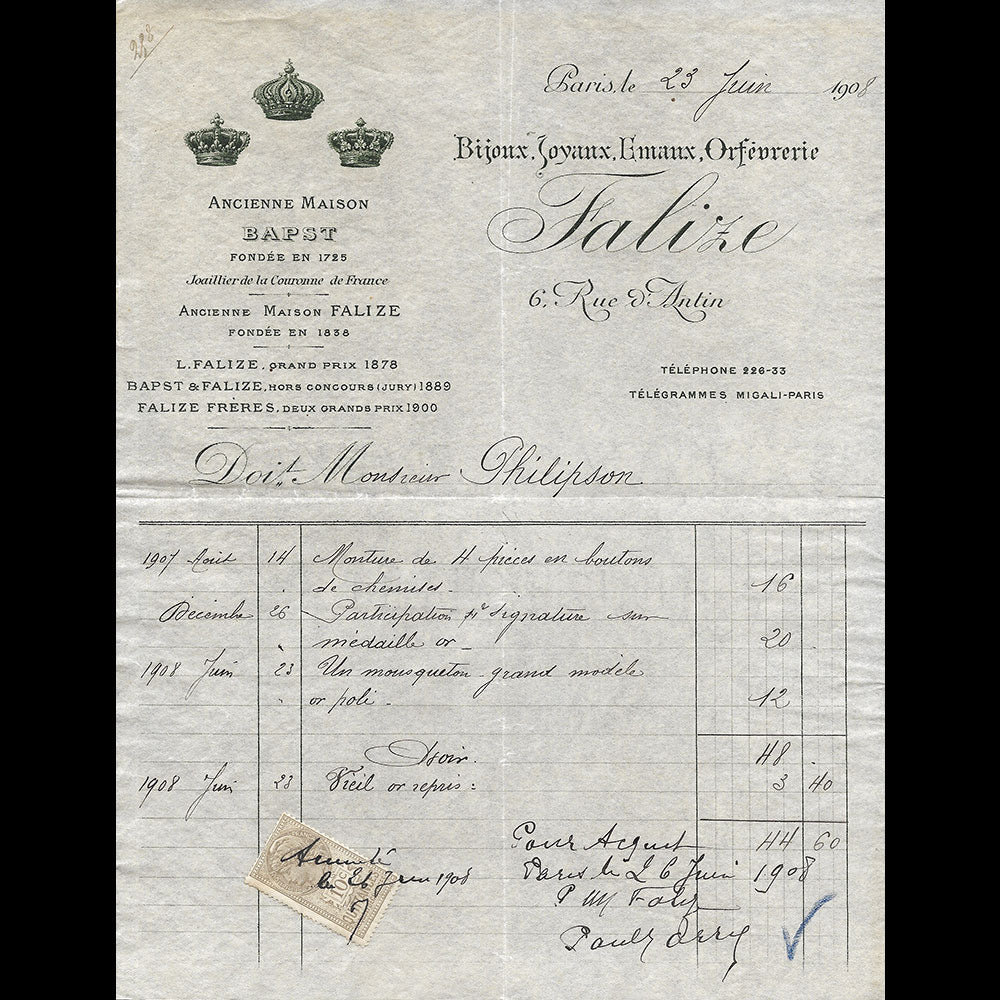 228
Paris, le 23 Juin 1908
Bijoux, Joyaux, Emaux, Orfévrerie
Falize
6, Rue d'Antin
TÉLÉPHONE 226-33
TÉLÉGRAMMES MIGALI-PARIS
ANCIENNE MAISON
BAPST
FONDÉE EN 1725
Joaillier de la Couronne de France
ANCIENNE MAISON FALIZE
FONDÉE EN 1838
L. FALIZE, GRAND PRIX 1878
BAPST & FALIZE, HORS CONCOURS (JURY) 1889
FALIZE FRÈRES, DEUX GRANDS PRIX 1900
Doit Monsieur Philipson
1907 Août 14 Monture de 4 pièces en boutons
de chemises - 16
Décembre 26 Participation pr signature sur
médaille or - 20
1908 Juin 23 Un mousqueton grand modèle
or poli - 12
48
Avoir.
1908 Juin 23 Vieil or repris : 3 40
Pour Acquit 44 60
Paris le 26 Juin 1908
10c
le 26 Juin 1908